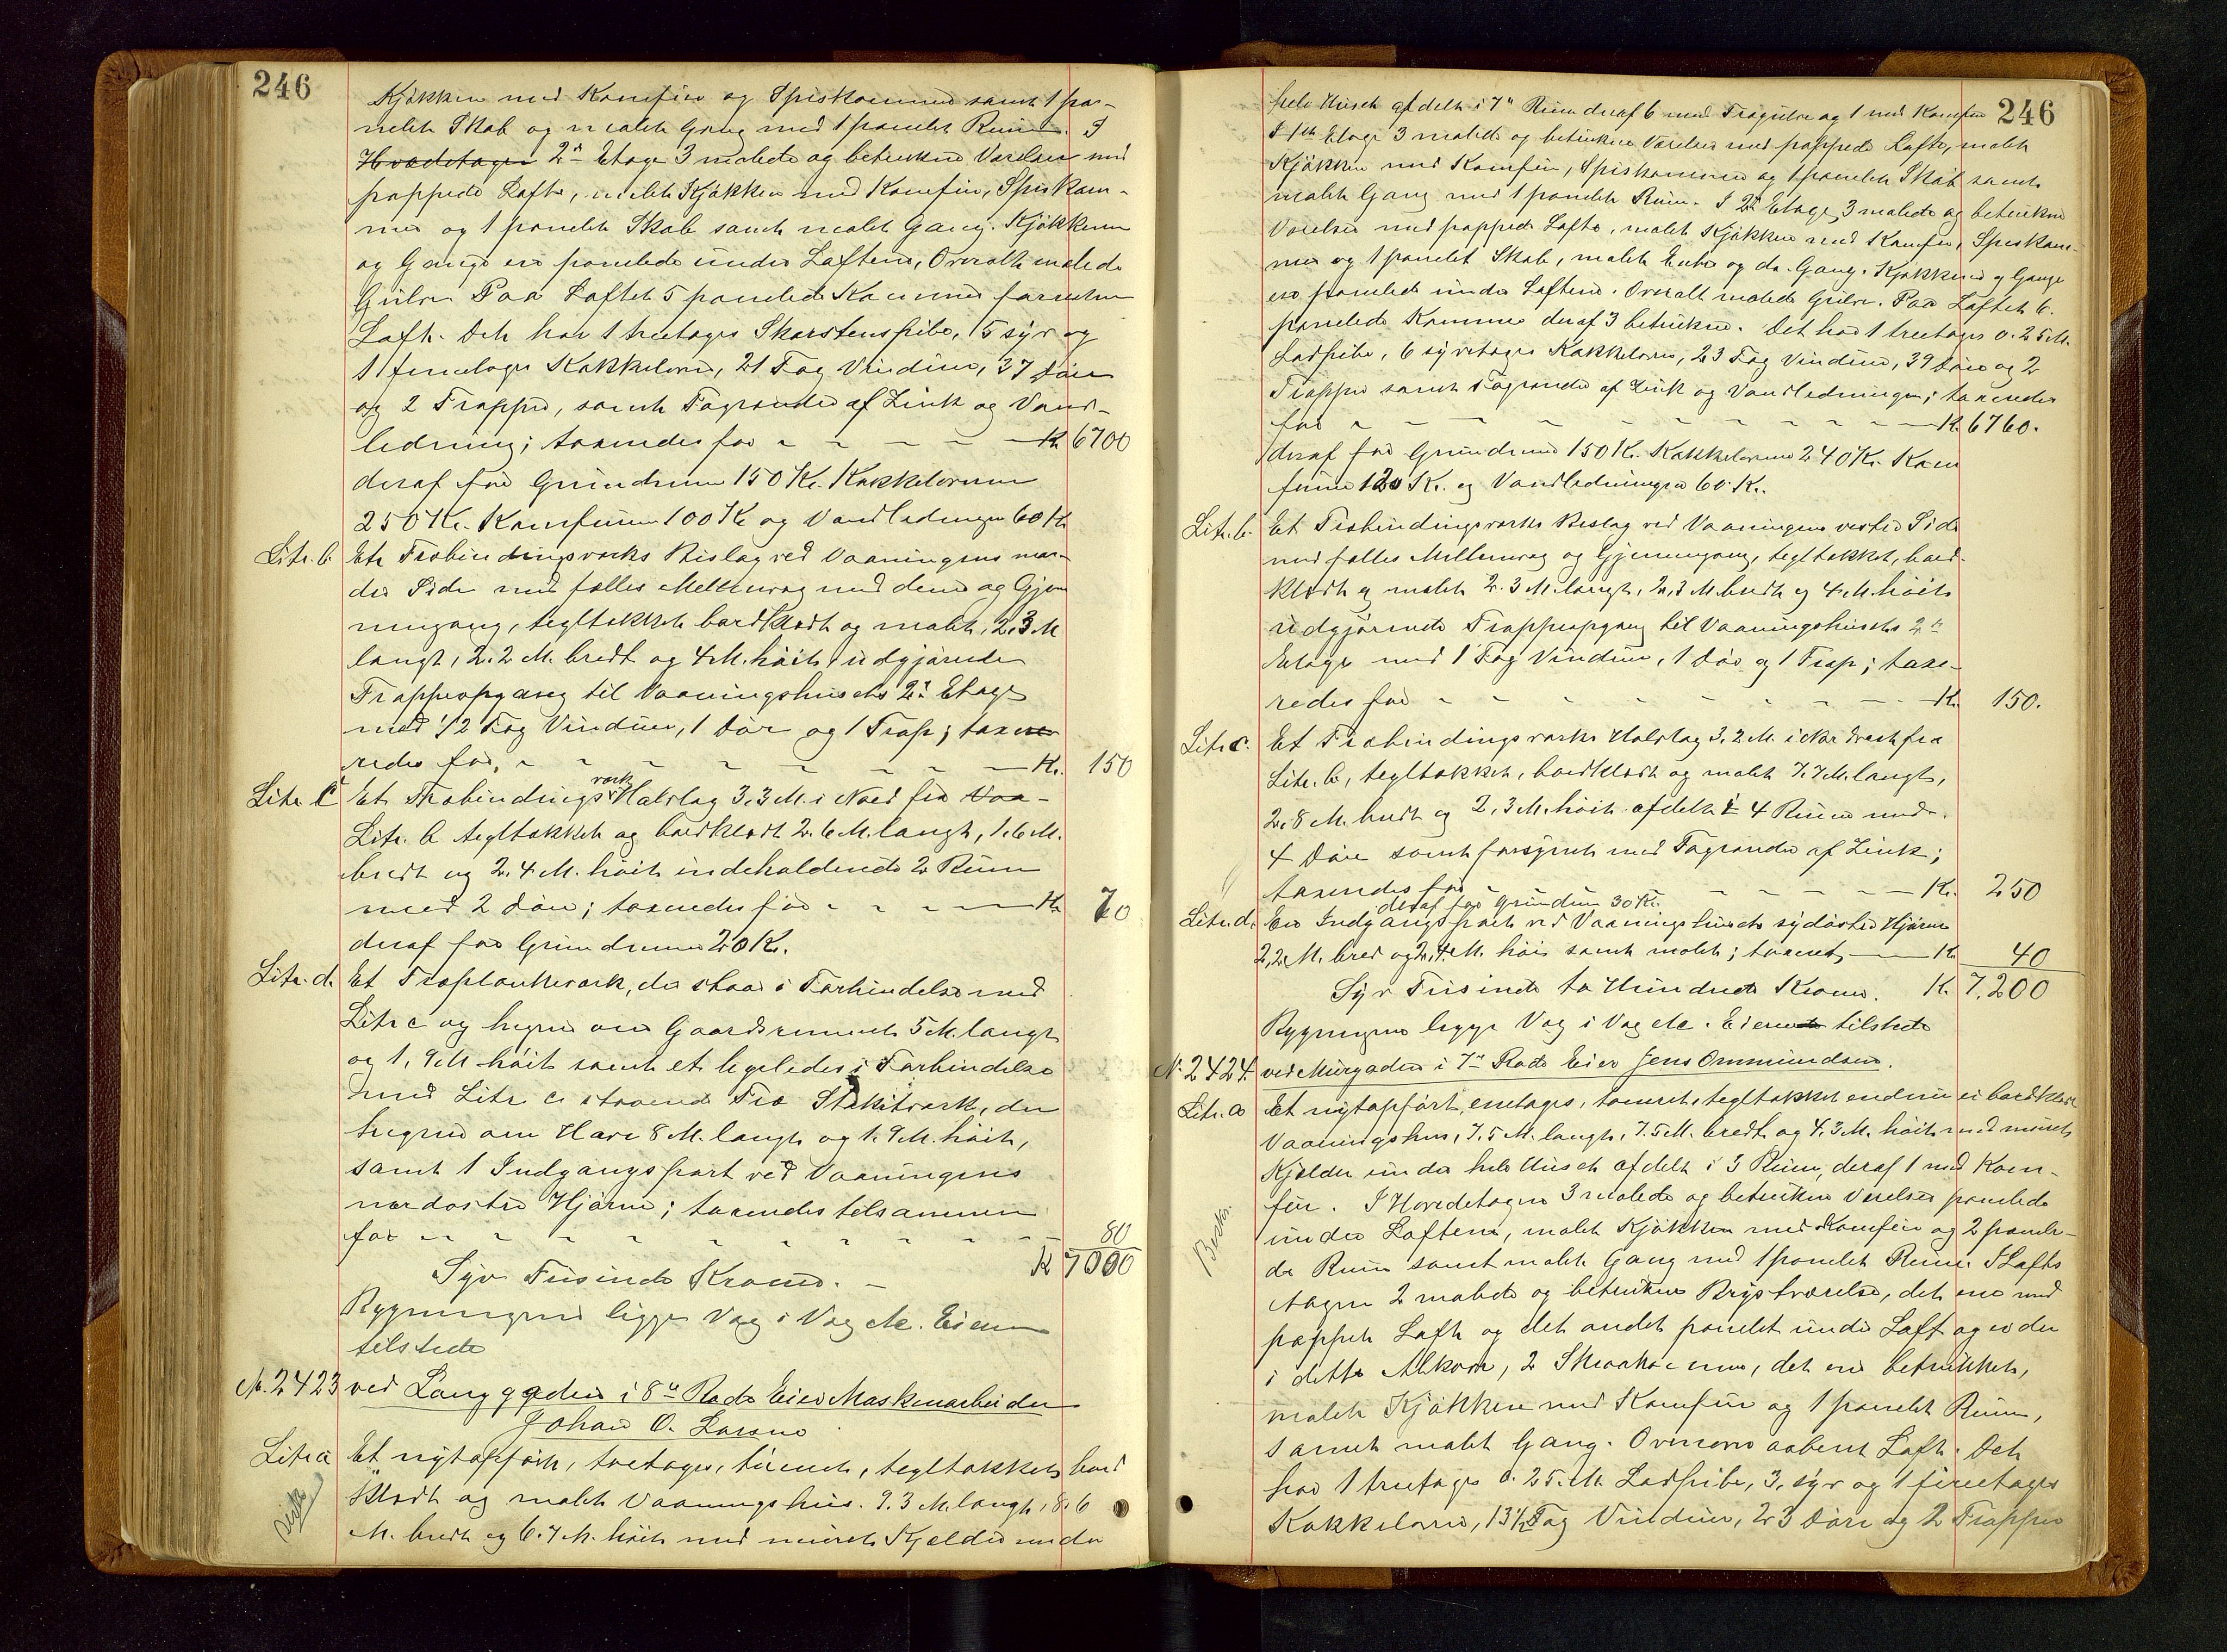 246
Kjøkken med Komfur og Spiskammer samt 1 pa-
nelet Skab og malet Gang med 1 panelet Rum. I
Hovedetagen 2n Etage 3 malede og betrukne Værelser med
pappede Lofte, malet Kjøkken med Komfur, Spiskam-
mer og 1 panelet Skab samt malet Gang. Kjøkkenerne
og Gange ere panelede under Loftene, Overalt malede
Gulve Paa Loftet 5 panelede Kammer foruden
Loft. Det har 1 treetages Skorstenspibe, 5 syv og
1 femetages Kakkelovne, 21 Fag Vinduer, 37 Døre
og 2 Trapper, samt Tagrender af Zink og Vand-
ledning; taxeredes for - - - - - Kr. 6700
deraf for Grundmur 150 Kr. Kakkelovnene
250 Kr. Komfurene 100 Kr og Vandledningen 60 Kr
Litr. b. Et Træbindingsværks Bislag ved Vaaningens nor-
dre Side med fælles Mellemvæg med denne og Gjen-
nemgang, tegltækket bordklædt og malet, 2,3 M
langt, 2.2 M. bredt og 4 M. høit, udgjørende
Trappeopgang til Vaaningshusets 2n Etage
med 1/2 Fag Vinduer, 1 Dør og 1 Trap; taxe
redes for, - - - - - - Kr. 150
Litr. C Et Træbindingsværk Halvtag 3,3 M. i Nord fra Vaa-
Litr. b tegltækket og bordklædt 2.6 M. langt, 1.6 M.
bredt og 2.4 M. høit indeholdende 2 Rum
med 2 Døre; taxeredes for - - - - Kr 70
deraf for Grundmur 20 Kr.
Litr. d. Et Træplankeværk, der staar i Forbindelse med
Litr c og hegner om Gaardsrummet 5 M. langt
og 1,9 M høit samt et ligeledes i Forbindelse
med Litr c staaende Træ Stakitværk, der
hegner om Have 8 M. langt og 1.9 M. høit,
samt 1 Indgangsport ved Vaaningens
nordostre Hjørne; taxeredes tilsammen
for - - - - - - - - 80
Syv Tusinde Kroner. - Kr 7000
Bygningerne ligge Væg i Væg etc. Eieren
tilstede
No. 2423 ved Langgaden i 8de Rode Eier Maskinarbeider
Johan O. Larsen
Litr a Et nytopført, toetages, tømret, tegltækket, bord
klædt og malet Vaaningshus. 9.3 M. langt, 8.6
M. bredt og 6.7 M. høit med muret Kjælder under
246
hele Huset afdelt i 7 Rum deraf 6 med Trægulve og 1 med Komfur
I 1ste Etage 3 malede og betrukne Værelser med pappede Lofte, malet
Kjøkken med Komfur, Spiskammer og 1 panelet Skab samt
malet Gang med 1 panelet Rum. I 2n Etage 3 malede og betrukne
Værelser med pappede Lofte, malet Kjøkken med Komfur, Spiskam-
mer og 1 panelet Skab, malet Entre og do. Gang. Kjøkkener og Gange
ere panelede under Loftene. Overalt malede Gulve. Paa Loftet 6.
panelede Kammer deraf 3 betrukne. Det har 1 treetages 0.25 M.
Ladpibe, 6 syvetages Kakkelovne, 23 Fag Vinduer, 39 Døre og 2
Trapper samt Tagrender af Zink og Vandledningen; taxeredes
for - - - - - - - - Kr. 6760.
deraf for Grundmur 150 Kr. Kakkelovnene 240 Kr. Kom
furene 120 Kr. og Vandledningen 60 Kr.
Litr. b. Et Træbindingsværks Bislag ved Vaaningens vestre Side
med fælles Mellemvæg og Gjennemgang, tegltækket, bord-
klædt og malet 2.3 M. langt, 2,3 M. bredt og 4 M. høit
udgjørende Trappeopgang til Vaaningshusets 2n
Etage med 1 Fag Vinduer, 1 Dør og 1 Trap; taxe-
redes for - - - - - - - Kr. 150.
Litr c. Et Træbindingsværks Halvtag 3,2 M. i Vest fra
Litr. b, tegltækket, bordklædt og malet 7.7 M. langt,
2,8 M. bredt og 2,3 M. høit afdelt i 4 Rum med
4 Døre samt forsynet med Tagrender af Zink;
taxeredes for - - - - - Kr. 250
deraf for Grundmur 30 Kr.
Litr. d. En Indgangsport ved Vaaningshusets sydøstre Hjørne
2,2 M. bred og 2,4 M. høi samt malet; taxeret — Kr 40
Syv Tusinde to Hundrede Kroner. Kr. 7,200
Bygningerne ligge Væg i Væg etc. Eieren tilstede
No 2424. ved Murgaden i 7n Rode Eier Jens Ommundsen.
Litr. a Et nytopført, enetages, tømret, tegltækket endnu ei bordklædt
Vaaningshus, 7.5 M. langt, 7.5 M. bredt og 4,3 M. høit med muret
Kjælder under hele Huset afdelt i 3 Rum, deraf 1 med Kom-
fur. I Hovedetagen 3 malede og betrukne Værelser panelede
under Loftene, malet Kjøkken med Komfur og 2 panele-
de Rum samt malet Gang med 1 panelet Rum. I Lofts
etagen 2 malede og betrukne Kvistværelser, det ene med
pappet Loft og det andet panelet under Loft og er der
i dette Alkove, 2 Skraakammer, det ene betrukket,
malet Kjøkken med Komfur og 1 panelet Rum,
samt malet Gang. Ovenover aabent Loft. Det
har 1 treetages 0.25 M. Ladpibe, 3 syv og 1 fireetages
Kakkelovne, 13 1/2 Fag Vinduer, 23 Døre og 2 Trapper